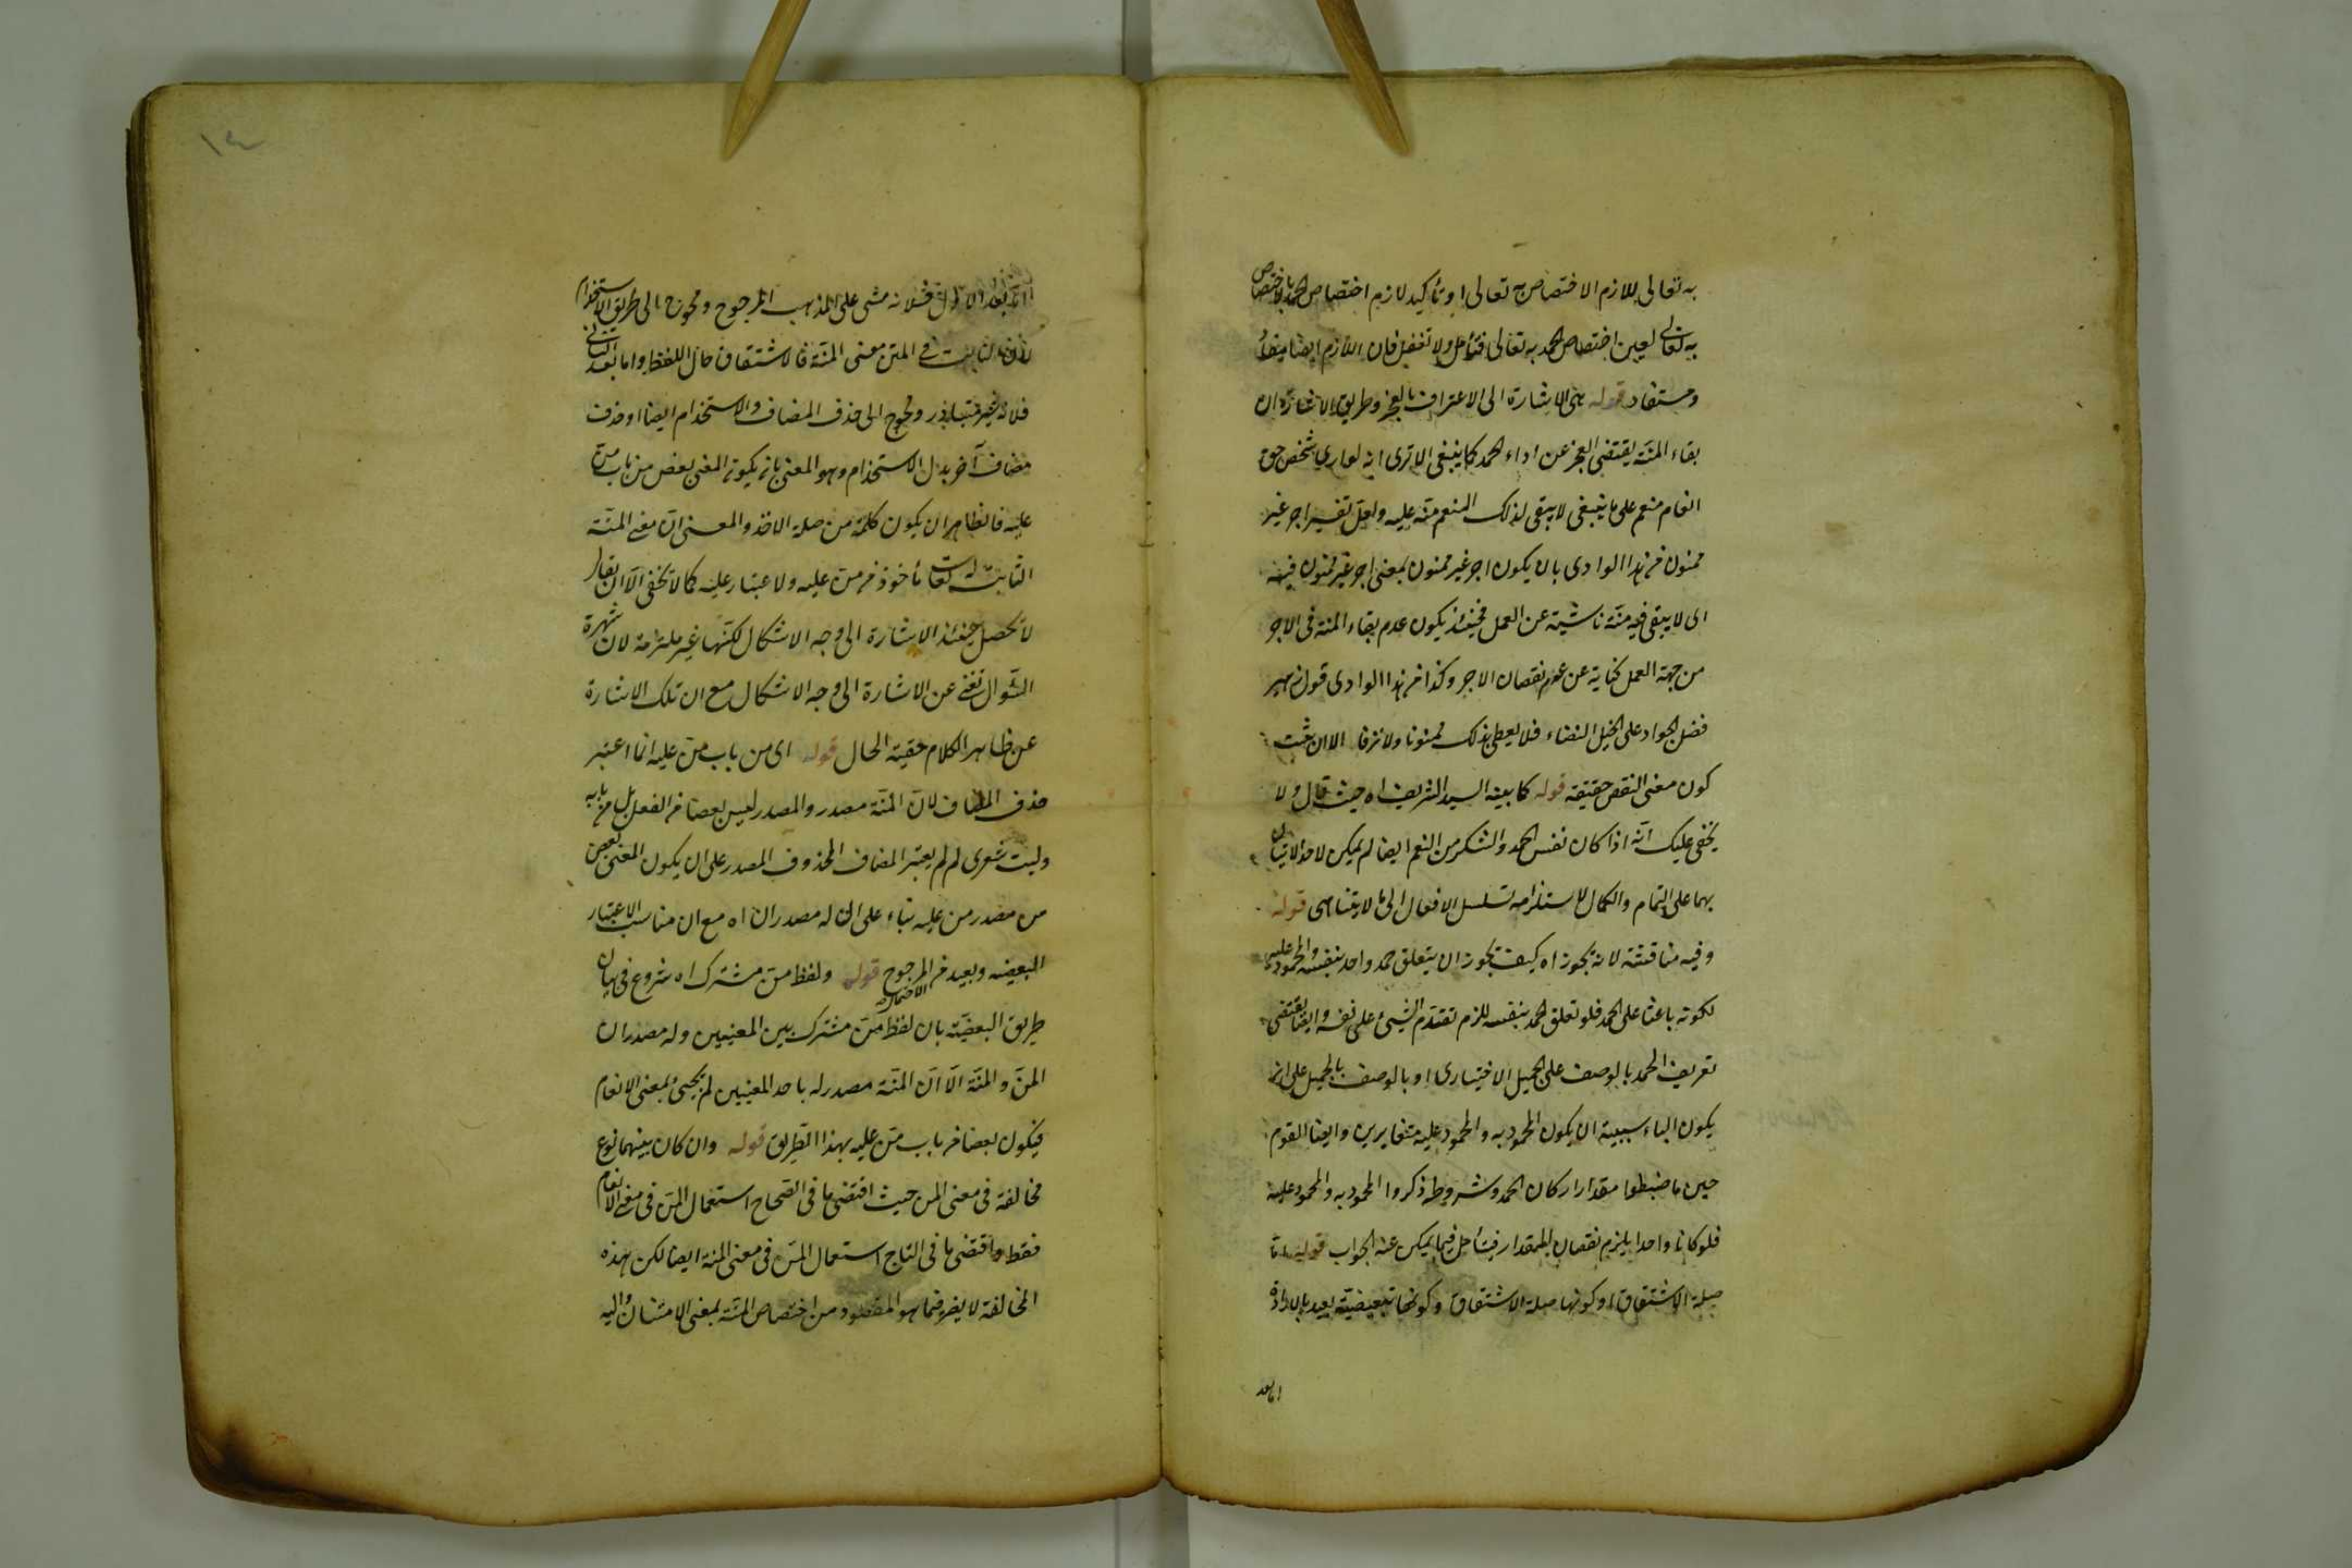 به تعالى للازم الاختصاص به تعالى او تأكيد لازم اختصاص الحمد بالاختصاص
به تعالى لعين اختصاص الحمد به تعالى فتأمل ولا تغفل فان اللازم ايضا
ومستفاد قوله هى الاشارة الى الاعتراف بالعجز وطريق الاشارة ان
بقاء المنة يقتضى العجز عن اداء الحمد كما ينبغى الا ترى انه شخص حق
انعام منعم على ما ينبغى لا يبقى لذلك المنعم منة عليه ولعل تفسير اجر غير
ممنون من هذا الوادى بان يكون اجر غير ممنون بمعنى اجر غير ممنون فيه
اى لا يبقى فيه منة ناشية عن العمل فحينئذ يكون عدم بقاء المنة فى الاجر
من جهة العمل كناية عن عدم نقصان الاجر وكذا من هذا الوادى قول زهير
فضل الجواد على الخيل البطاء فلا يعطى بذلك ممنونا ولا نزقا الا ان يثبت
كون معنى النقص حقيقة قوله كما بينه السيد الشريف اه حيث قال ولا
يخفى عليك انه اذا كان نفس الحمد والشكر من النعم ايضا لم يمكن لاحد الاتيان
بهما على التمام والكمال لاستلزامه تسلسل الافعال الى ما لا يتناهى قوله
وفيه مناقشة لانه يجوز اه كيف يجوز ان يتعلق حمد واحد بنفسه والمحمود عليه
لكونه باعثا على الحمد فلو تعلق الحمد بنفسه للزم تقدم الشئ على نفسه وايضا يقتضى
تعريف الحمد بالوصف على الجميل الاختيارى او بالوصف بالجميل على ان
يكون الباء سببية ان يكون المحمود به والمحمود عليه متغايرين وايضا القوم
حين ما ضبطوا مقدار اركان الحمد وشروطه ذكروا المحمود به والمحمود عليه
فلو كانا واحدا يلزم نقصان المقدار فتأمل فيما يمكن عنه الجواب قوله
صلة الاشتقاق او كونها صلة الاشتقاق وكونها تبعيضية بعيد بالارادة
اما بعد
اما بعد الاول فلانه مشى على المذهب المرجوح ومحوج الى طريق الاستخدام
لان الثابت فى المتن معنى المنة فالاشتقاق حال اللفظ واما بعد الثانى
فلانه غير متبادر ومحوج الى حذف المضاف والاستخدام ايضا او حذف
مضاف آخر بدل الاستخدام وهو المعنى بانه يكون المعنى بعض من باب من
عليه فالظاهر ان يكون كلمة من صلة الاخذ والمعنى ان معنى المنة
الثابتة له تعالى مأخوذ من من عليه ولا غبار عليه كما لا يخفى الا ان يقال
لا تحصل حينئذ الاشارة الى وجه الاشكال لكنها غير ملتزمة لان شهرة
السؤال تغنى عن الاشارة الى وجه الاشكال مع ان تلك الاشارة
عن ظاهر الكلام خفية الحال قوله اى من باب من عليه انما اعتبر
حذف المضاف لان المنة مصدر والمصدر ليس بعضا من الفعل بل من بابه
وليت شعرى لم لم يعتبر المضاف المحذوف المصدر على ان يكون المعنى بعض
من مصدر من عليه بناء على ان له مصدران اه مع ان مناسب الاعتبار
البعضية وبعيد من المرجوح قوله ولفظ من مشترك اه شروع فى بيان
طريق البعضية بان لفظ من مشترك بين المعنيين وله مصدران
المن والمنة الا ان المنة مصدر له باحد المعنيين لم يجئ بمعنى الانعام
فيكون بعضا من باب من عليه بهذا الطريق قوله وان كان بينهما نوع
مخالفة فى معنى المن حيث اقتضى ما فى الصحاح استعمال المن فى معنى الانعام
فقط واقتضى ما فى التاج استعمال المن فى معنى المنة ايضا لكن هذه
المخالفة لا يضر فيما هو المقصود من اختصاص المنة بمعنى الامتنان واليه